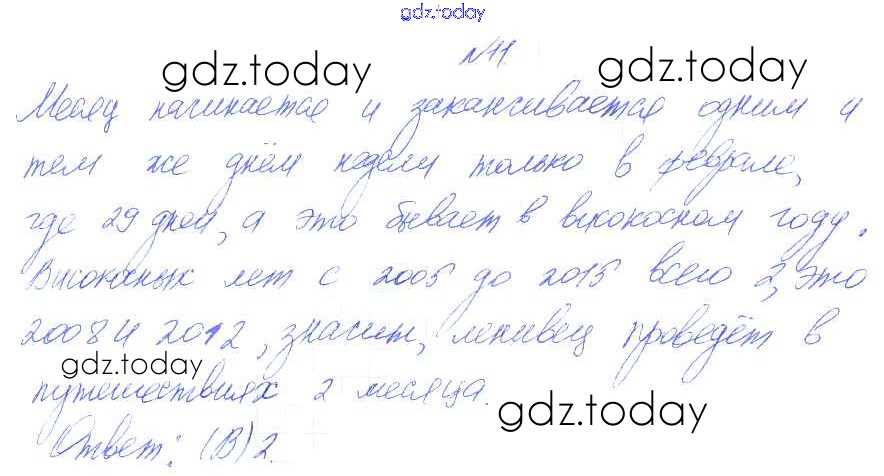 gdz.today
№11.
gdz.today gdz.today
Месяц начинается и заканчивается одним и
тем же днём недели только в феврале,
где 29 дней, а это бывает в високосном году.
Високосных лет с 2005 до 2015 всего 2, это
2008 и 2012, значит, ленивец проведёт в
gdz.today
путешествиях 2 месяца.
gdz.today
Ответ: (В) 2.